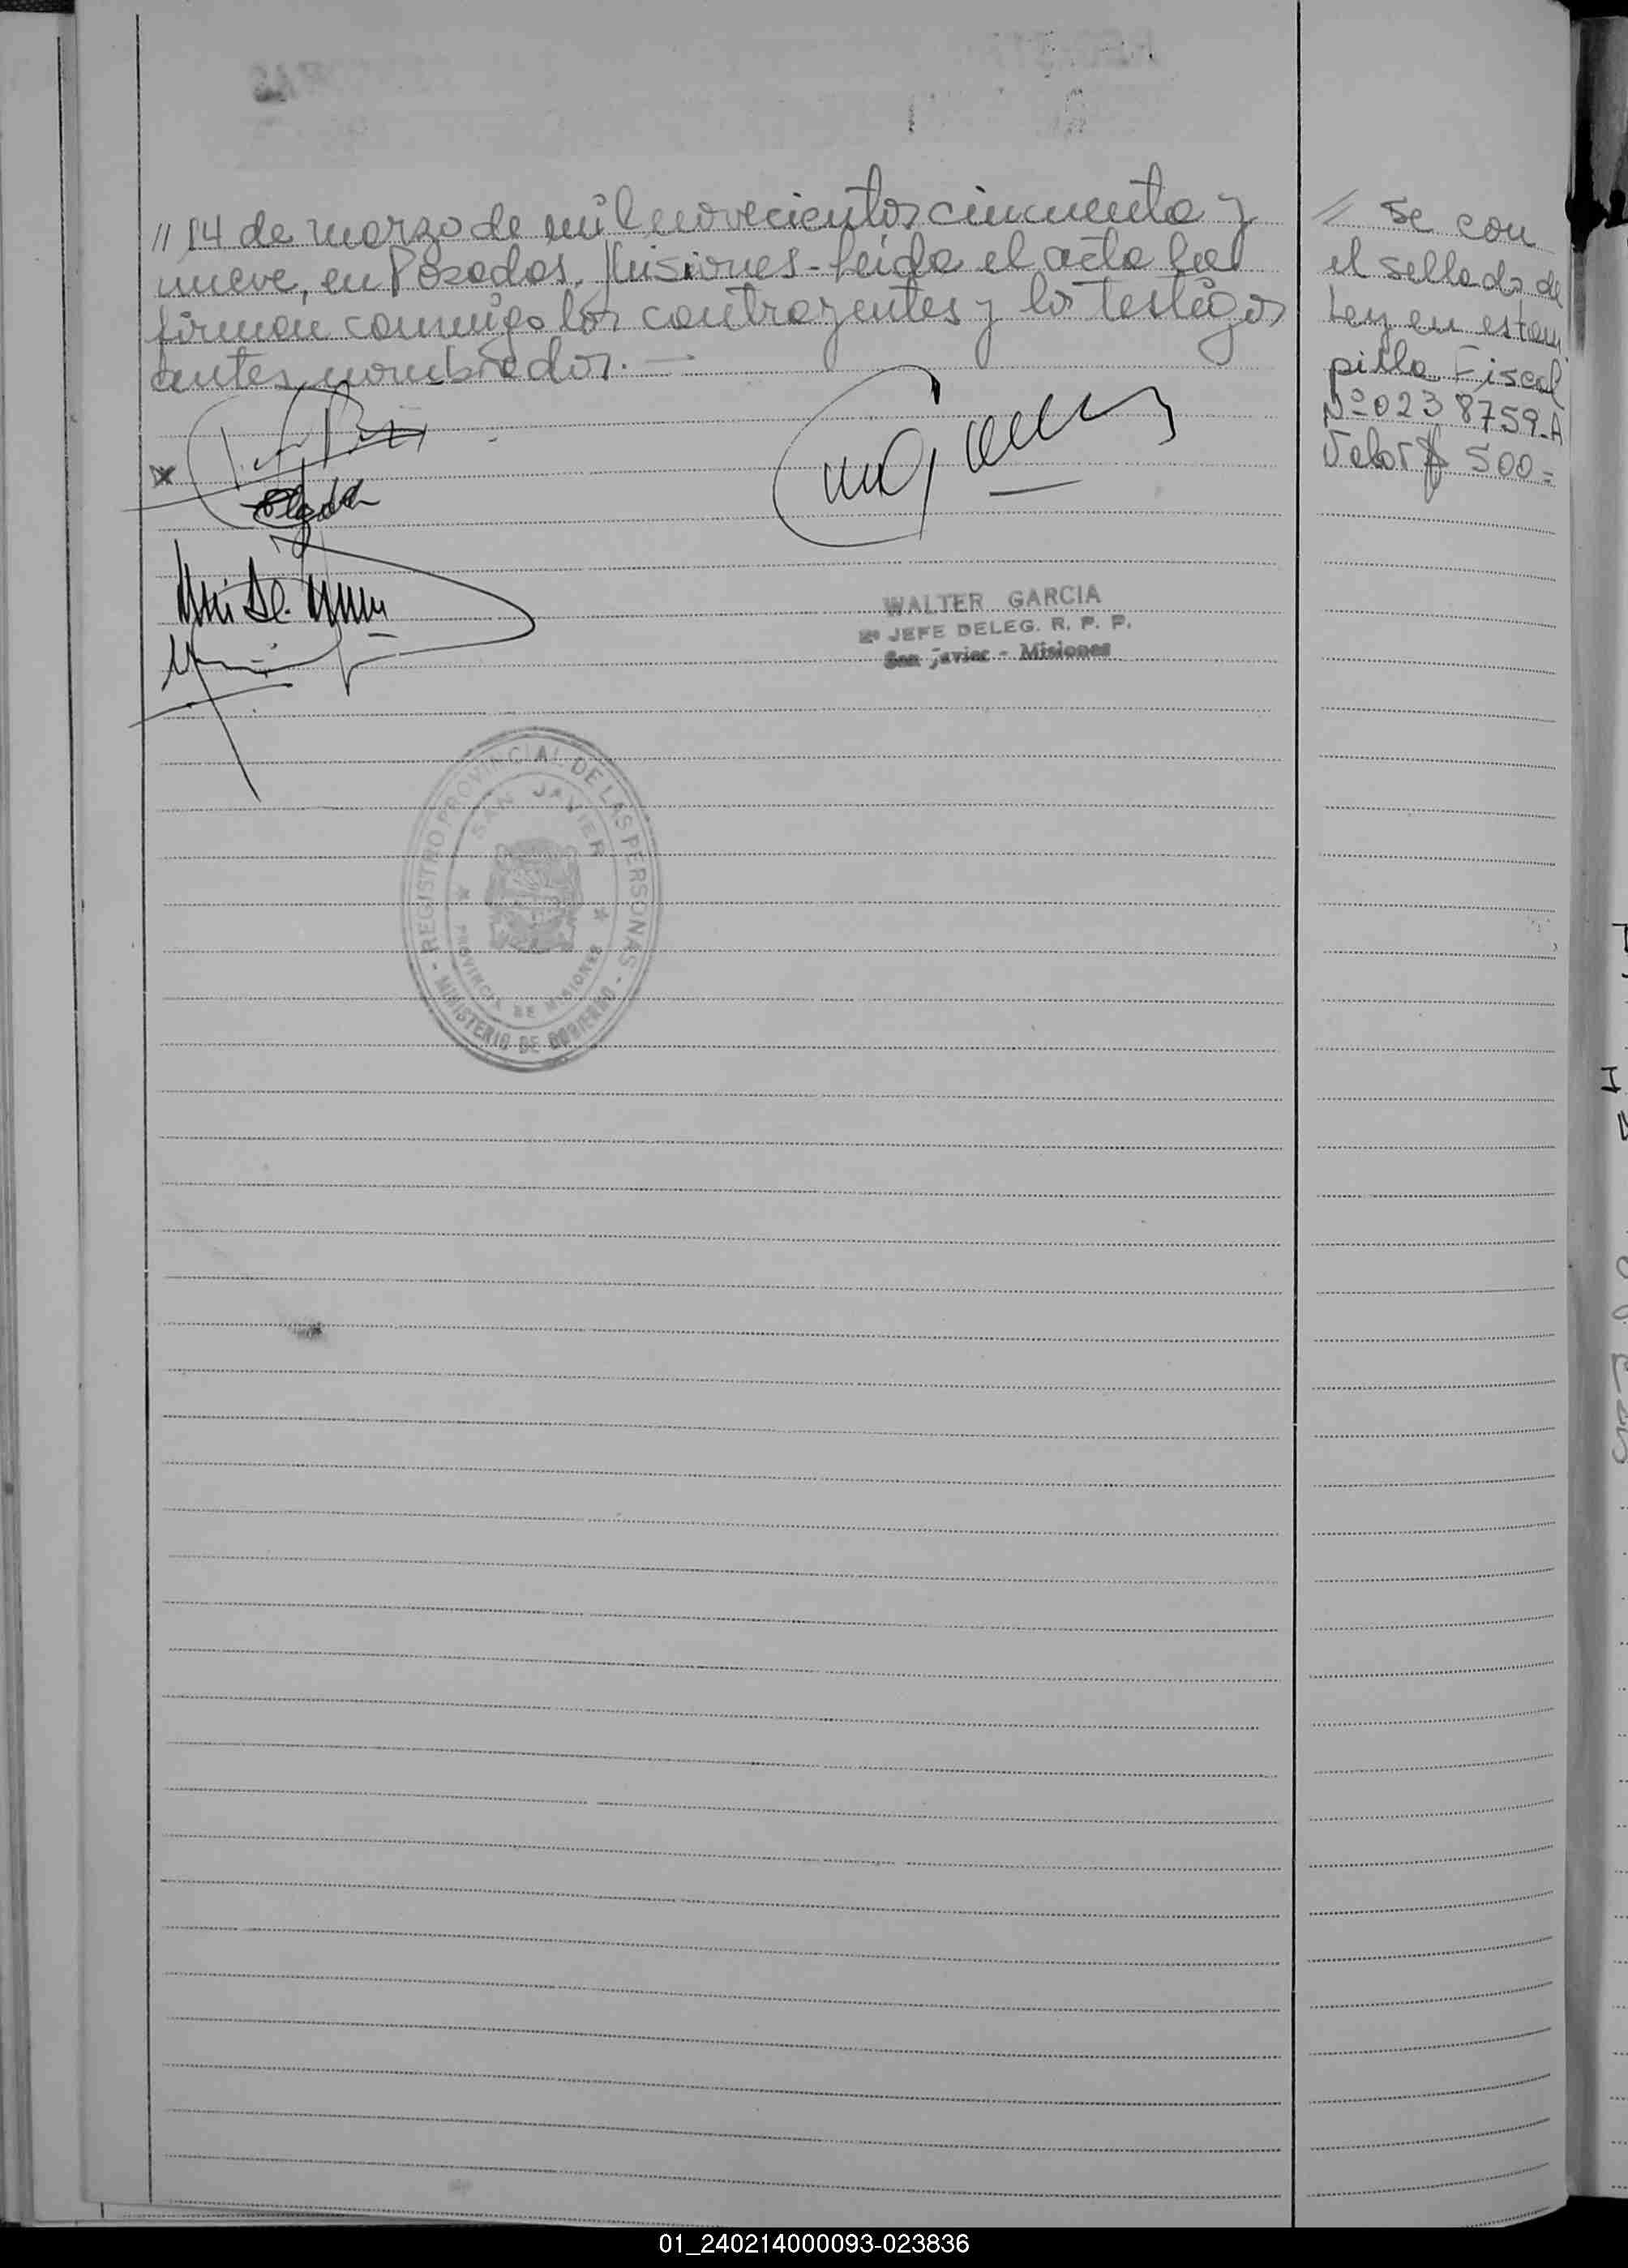 // 14 de marzo de mil novecientos cincuenta y
nueve, en Posadas, Misiones - Leida el acta la
firman conmigo los contrayentes y los testigos
antes nombrados. —
// Se con
el sellado de
Ley en estam
pilla Fiscal
Nº 0238759-A
Valor $ 500=
WALTER GARCIA
2º JEFE DELEG. R. P. P.
San Javier - Misiones
- REGISTRO PROVINCIAL DE LAS PERSONAS -
SAN JAVIER
PROVINCIA DE MISIONES
MINISTERIO DE GOBIERNO
01_240214000093-023836